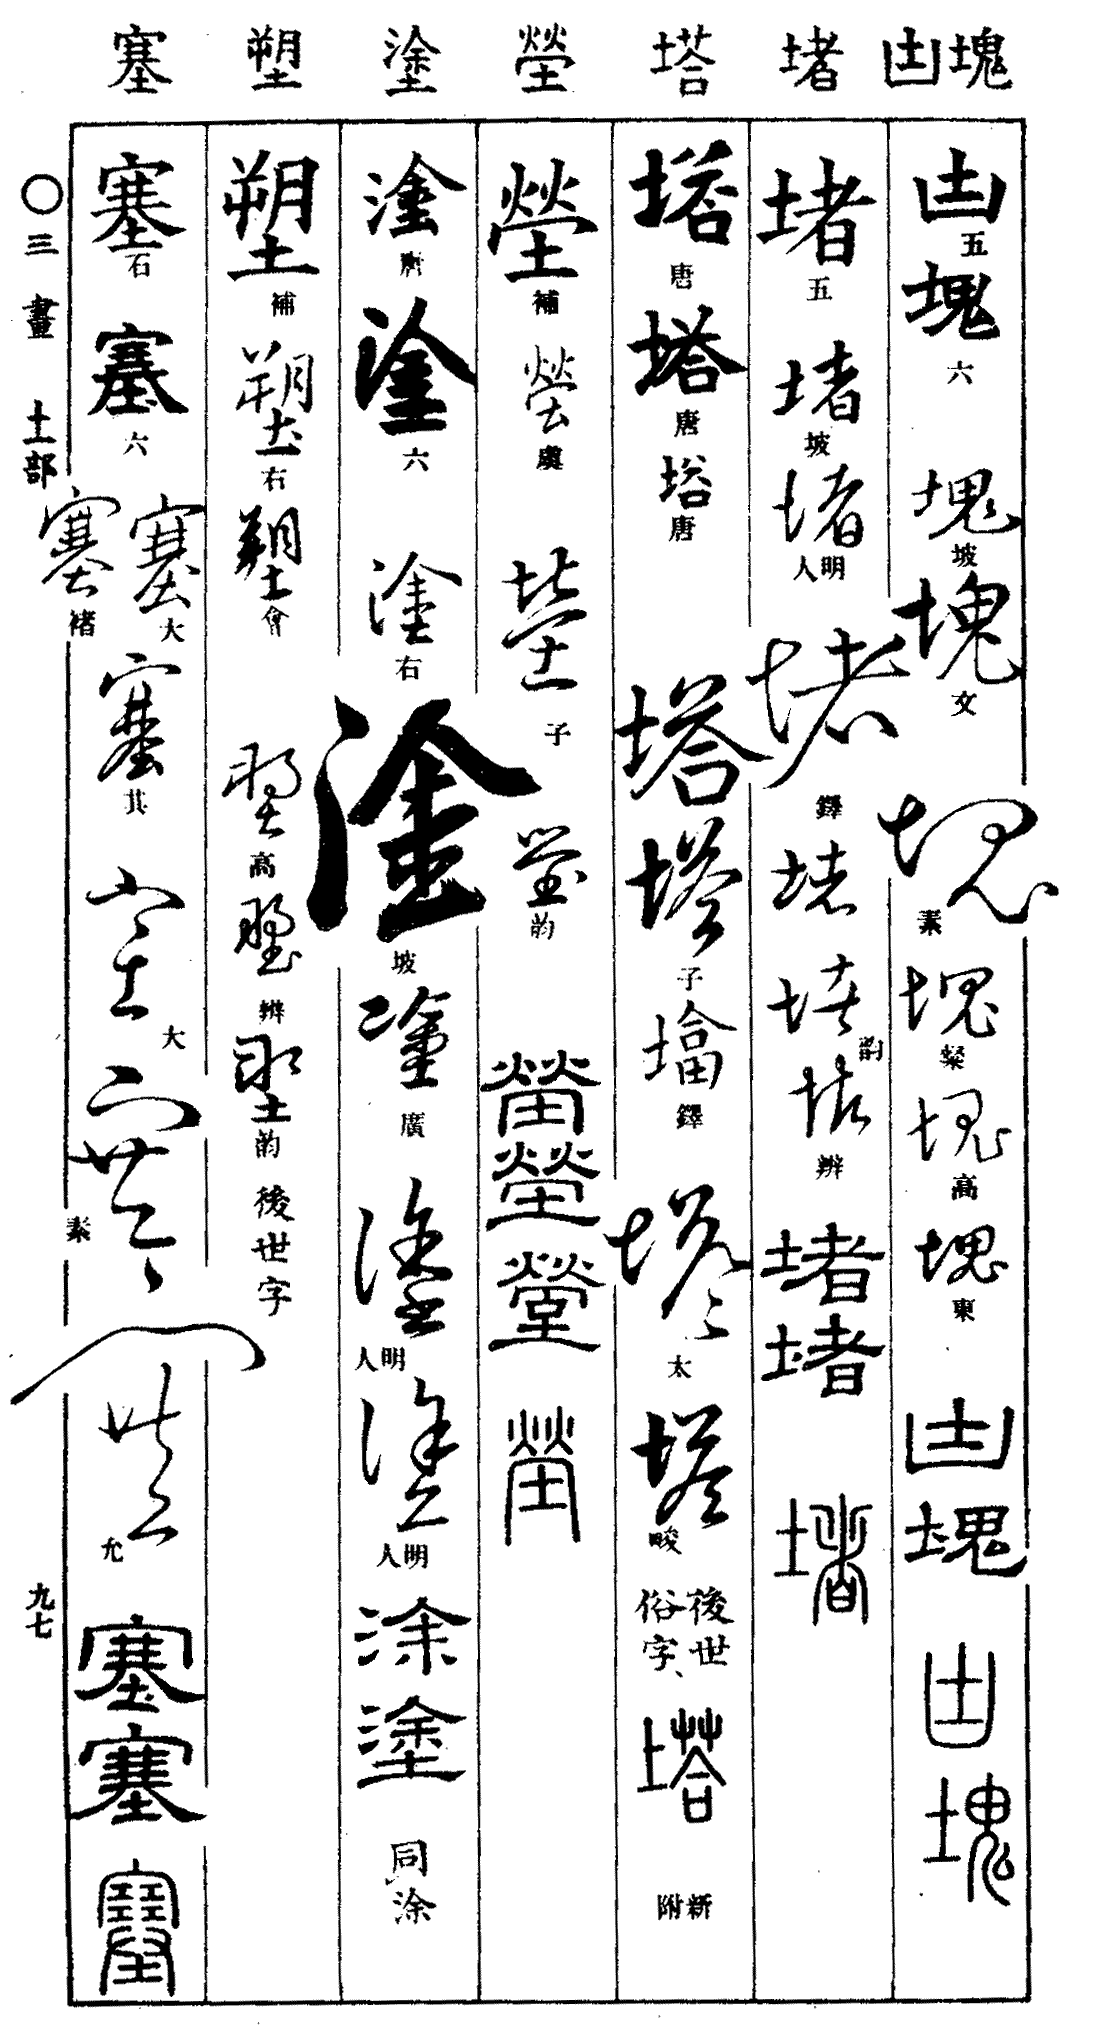 塊凷
堵
塔
塋
塗
塑
塞
凷 五
塊 六
塊 坡
塊 文
塊 素
塊 粲
塊 高
塊 東
凷
塊
凷
塊
堵 五
堵 坡
堵 明人
堵 鐸
堵
堵 韵
堵 辨
堵
堵
堵
塔 唐
塔 唐
塔 唐
塔
塔 子
塔 鐸
塔 太
塔 畯
後世俗字、
塔
新附
塋 補
塋 虞
塋 子
塋 韵
塋
塋
塋
塋
塗 唐
塗 六
塗 右
塗 坡
塗 廣
塗 明人
塗 明人
涂
塗
同涂
塑 補
塑 右
塑 會
塑 高
塑 辨
塑 韵
後世字
塞 石
塞 六
塞 大
塞 褚
塞 其
塞 大
塞 素
塞 允
塞
塞
〇三畫 土部
九七